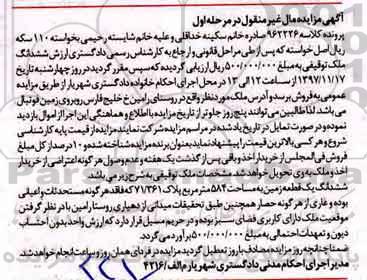 آگهی مزایده مال غیر منقول در مرحله اول
پرونده کلاسه ۹۶۲۲۲۶ صادره خانم سکینه خداقلی و علیه خانم شایسته رحیمی بخواسته ۱۱۰ سکه
ریال اصل خواسته که پس از طی مراحل قانونی و ارجاع به کارشناس رسمی دادگستری ارزش ششدانگ
ملک توقیفی به مبلغ ۵۰۰/۰۰۰/۰۰۰ ریال ارزیابی گردیده که سپس مقرر گردید در روز چهارشنبه تاریخ
۱۳۹۷/۱۱/۱۷ از ساعت ۱۲ الی ۱۳ در محل اجرای احکام خانواده دادگستری شهریار از طریق مزایده
عمومی به فروش برسد و آدرس ملک مورد نظر واقع در روستای رامین خ خلیج فارس روبروی زمین فوتبال
می باشد لذا طالبین می توانند پنج روز جلوتر از تاریخ مزایده با اطلاع و هماهنگی این اجرا از اموال بازدید
نموده و در صورت تمایل در تاریخ یاد شده در مراسم مزایده شرکت نمایند مزایده از قیمت پایه کارشناسی
شروع و هر کسی بالاترین قیمت را پیشنهاد نماید بعنوان برنده مزایده شناخته شده ۱۰ درصد از کل مبلغ
فروش فی المجلس از خریدار اخذ و باقی پس از گذشت یک هفته و عدم وصول هر گونه اعتراضی از خریدار
اخذ و ملک به وی تحویل خواهد شد مشخصات ملک توقیفی به شرح زیر می باشد.
ششدانگ یک قطعه زمین به مساحت ۵۸۴ متر مربع پلاک ۷۱/۳۶۱ که فاقد هر گونه مستحدثات و اعیانی
بوده و عاری از هر گونه حصار همچنین طبق تحقیقات میدانی از دهیاری روستا رامین با در نظر گرفتن
موقعیت ملک دارای کاربری فضای سبز بوده و در حریم مسیل قرار دارد که ارزش واخذ بدون احتساب
دیون و تعهدات احتمالی به مبلغ ۵۰۰/۰۰۰/۰۰۰ برآورد می گردد.
ضمنا چنانچه روز مزایده مصادف با روز تعطیل گردید مزایده در فردای همان روز و ساعت انجام خواهد شد.
مدیر اجرای احکام مدنی دادگستری شهریار م الف/۴۲۱۶